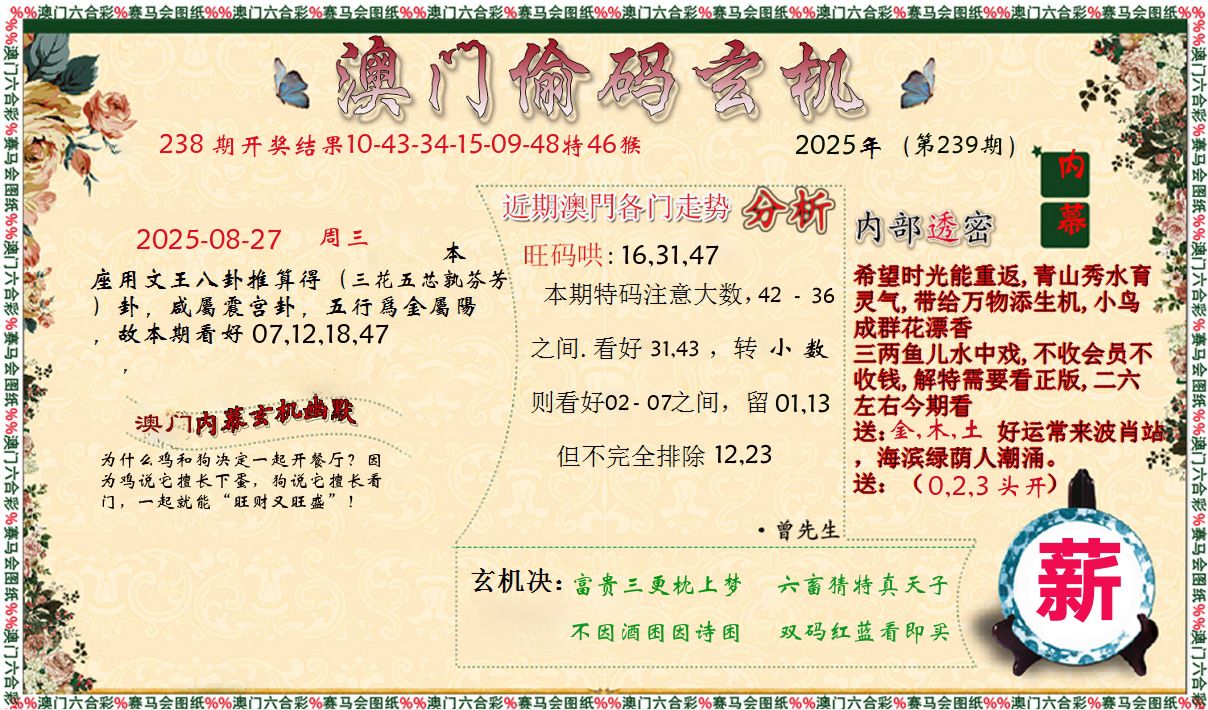 %%澳门六合彩%赛马会图纸%%澳门六合彩%赛马会图纸%%澳门六合彩%赛马会图纸%%澳门六合彩%赛马会图纸%%澳门六合彩%赛马会图纸%%澳门六合彩%赛马会图纸%%
澳门偷码玄机
238 期开奖结果10-43-34-15-09-48特46猴
2025年（第239期）
内幕
2025-08-27 周三
本
座用文王八卦推算得（三花五芯孰芬芳
）卦，咸屬震宫卦，五行爲金屬陽
，故本期看好 07,12,18,47
，
澳门内幕玄机幽默
为什么鸡和狗决定一起开餐厅？因
为鸡说它擅长下蛋，狗说它擅长看
门，一起就能“旺财又旺盛”！
近期澳門各门走势 分析
旺码哄: 16,31,47
本期特码注意大数, 42 - 36
之间. 看好 31,43 ，转 小 数
则看好02 - 07之间，留 01,13
但不完全排除 12,23
·曾先生
内部透密
希望时光能重返, 青山秀水育
灵气, 带给万物添生机, 小鸟
成群花漂香
三两鱼儿水中戏, 不收会员不
收钱, 解特需要看正版, 二六
左右今期看
送: 金, 木, 土 好运常来波肖站
，海滨绿荫人潮涌。
送: （0,2,3 头开）
玄机决: 富贵三更枕上梦 六畜猜特真天子
不因酒困因诗困 双码红蓝看即买
薪
%%澳门六合彩%赛马会图纸%%澳门六合彩%赛马会图纸%%澳门六合彩%赛马会图纸%%澳门六合彩%赛马会图纸%%澳门六合彩%赛马会图纸%%澳门六合彩%赛马会图纸%%